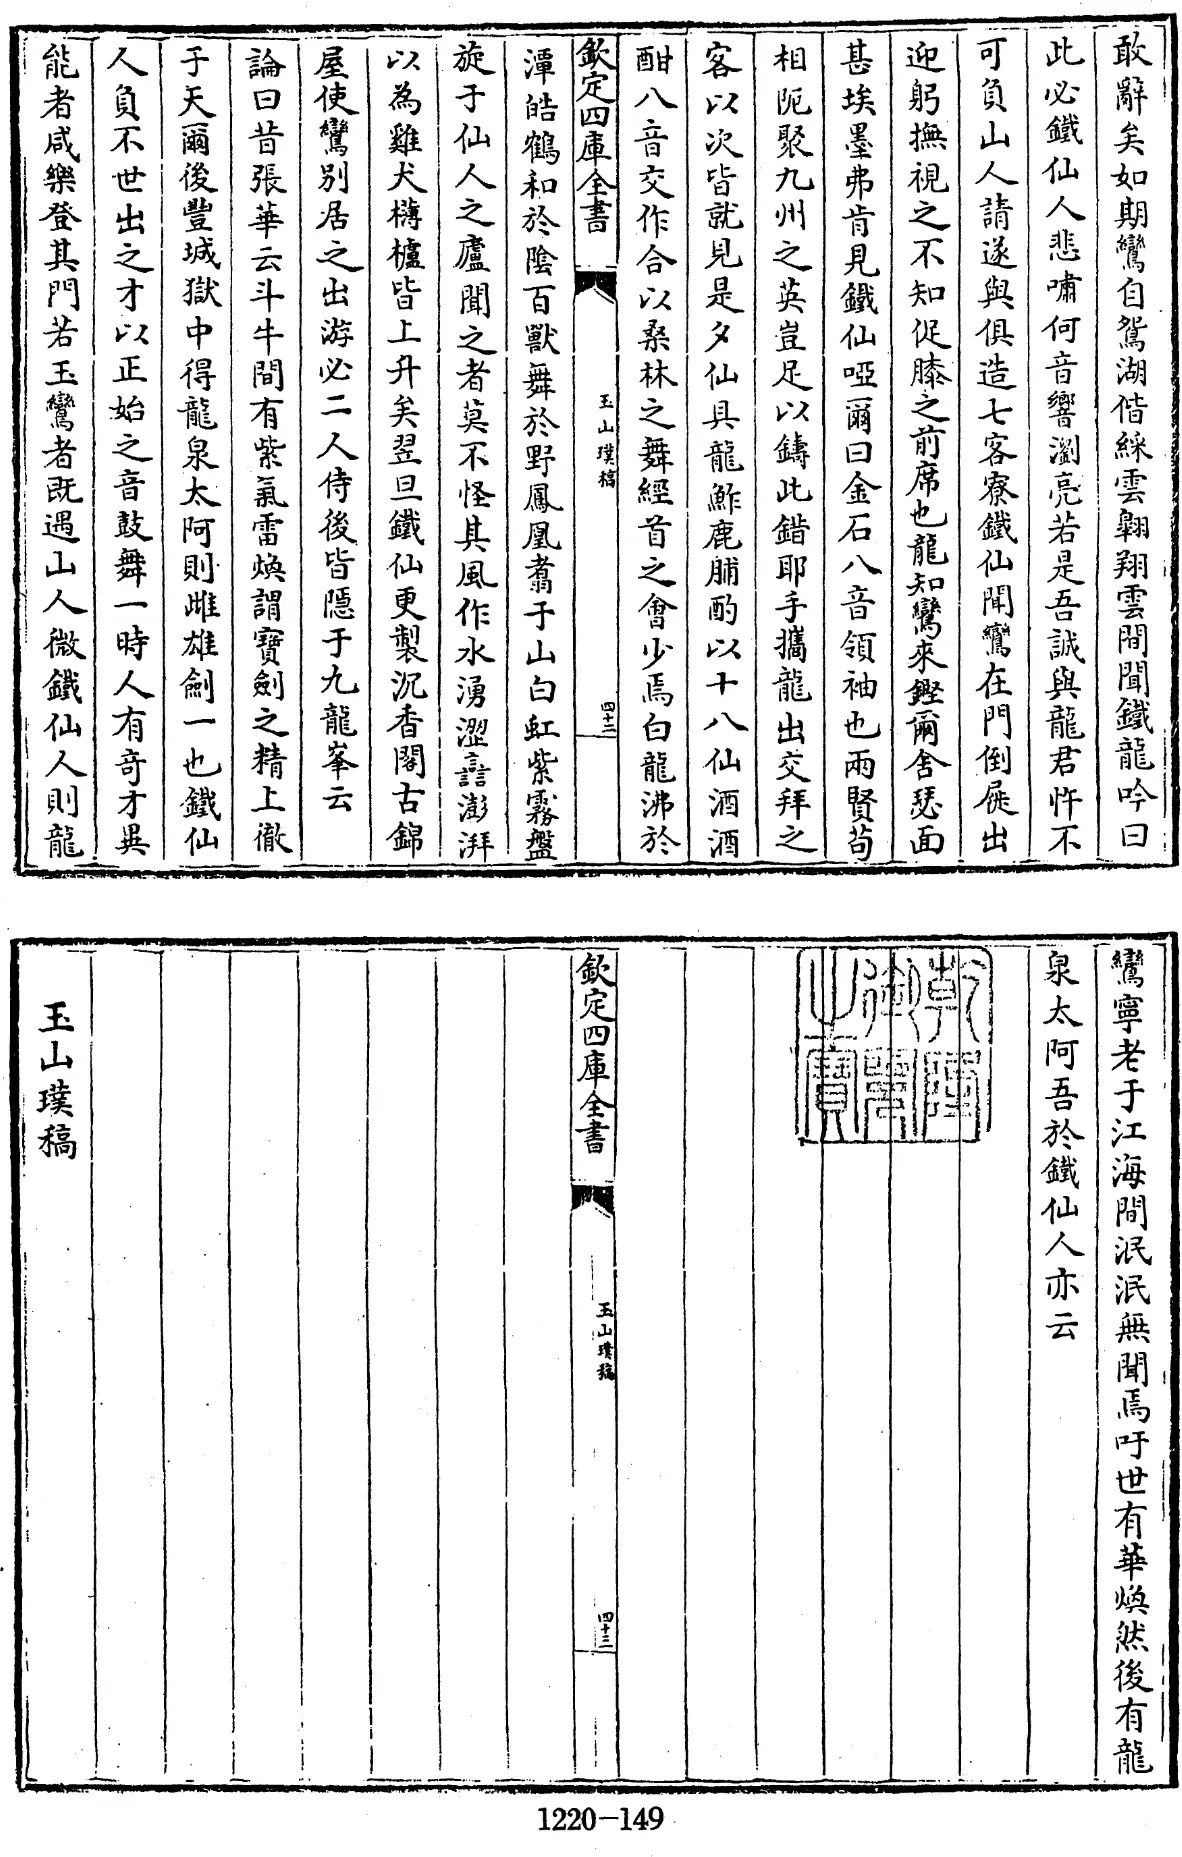 敢辭矣如期鸞自鴛湖偕綵雲翱翔雲間聞鐵龍吟曰
此必鐵仙人悲嘯何音響瀏亮若是吾誠與龍君忤不
可負山人請遂與俱造七客寮鐵仙聞鸞在門倒屣出
迎躬撫視之不知促膝之前席也龍知鸞來鏗爾舍瑟面
甚埃墨弗肯見鐵仙啞爾曰金石八音領袖也兩賢苟
相阨聚九州之英豈足以鑄此錯耶手攜龍出交拜之
客以次皆就見是夕仙具龍鮓鹿脯酌以十八仙酒酒
酣八音交作合以桑林之舞經首之會少焉白龍沸於
欽定四庫全書
玉山璞稿
四十二
潭皓鶴和於陰百獸舞於野鳳凰翥于山白虹紫霧盤
旋于仙人之廬聞之者莫不怪其風作水湧澀譶澎湃
以為雞犬欂櫨皆上升矣翌旦鐵仙更製沉香閣古錦
屋使鸞別居之出游必二人侍後皆隱于九龍峯云
論曰昔張華云斗牛間有紫氣雷煥謂寶劍之精上徹
于天爾後豐城獄中得龍泉太阿則雌雄劍一也鐵仙
人負不世出之才以正始之音鼓舞一時人有奇才異
能者咸樂登其門若玉鸞者既遇山人微鐵仙人則龍
鸞寧老于江海間泯泯無聞焉吁世有華煥然後有龍
泉太阿吾於鐵仙人亦云
乾隆御覽之寶
欽定四庫全書
玉山璞稿
四十三
玉山璞稿
1220-149